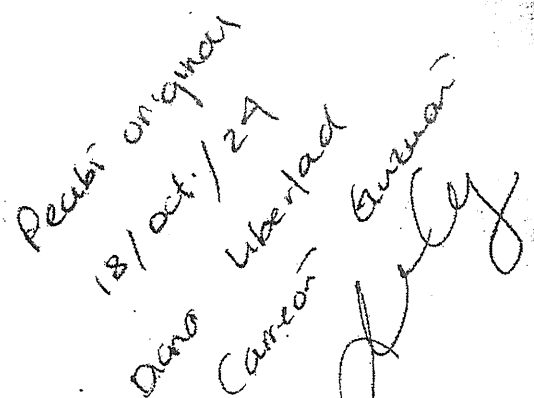 Recibí original
18/oct./24
Diana Libertad
Carreón Guzmán